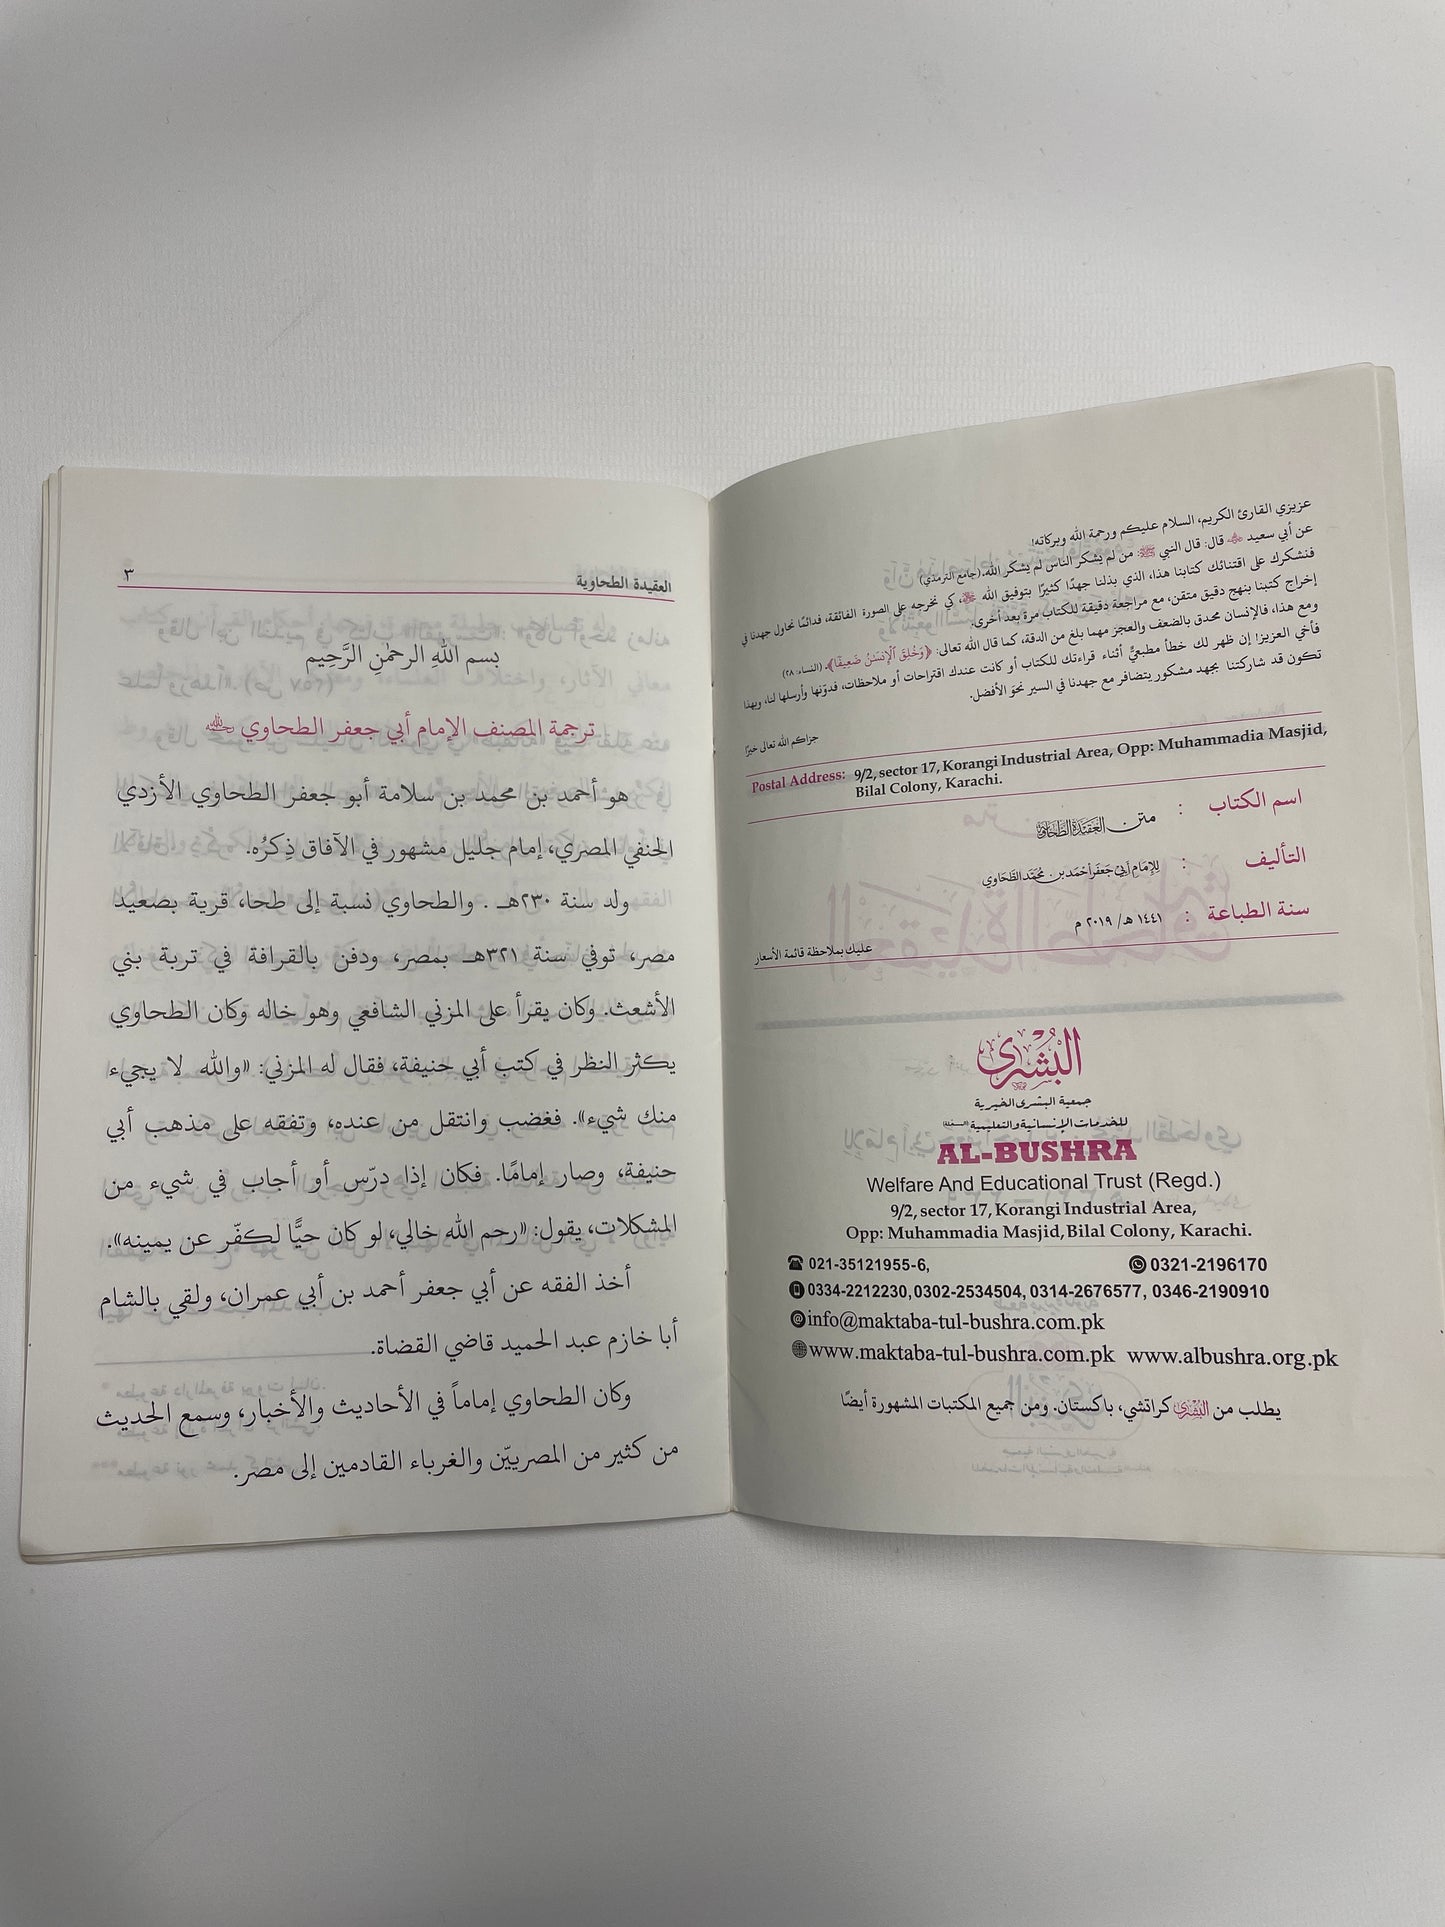 عزيزي القارئ الكريم، السلام عليكم ورحمة الله وبركاته!
عن أبي سعيد ﷺ قال: قال النبي ﷺ: من لم يشكر الناس لم يشكر الله. (جامع الترمذي)
فنشكرك على اقتنائك كتابنا هذا، الذي بذلنا جهدًا كثيرًا بتوفيق الله ﷻ، كي نخرجه على الصورة الفائقة، فدائمًا نحاول جهدنا في
إخراج كتبنا بنهج دقيق متقن، مع مراجعة دقيقة للكتاب مرة بعد أخرى.
ومع هذا، فالإنسان محدق بالضعف والعجز مهما بلغ من الدقة، كما قال الله تعالى: ﴿وَخُلِقَ ٱلْإِنسَٰنُ ضَعِيفًا﴾. (النساء: ٢٨)
فأخي العزيز! إن ظهر لك خطأ مطبعيٌّ أثناء قراءتك للكتاب أو كانت عندك اقتراحات أو ملاحظات، فدوّنها وأرسلها لنا، وبهذا
تكون قد شاركتنا بجهد مشكور يتضافر مع جهدنا في السير نحوَ الأفضل.
جزاكم الله تعالى خيرًا
Postal Address: 9/2, sector 17, Korangi Industrial Area, Opp: Muhammadia Masjid,
Bilal Colony, Karachi.
اسم الكتاب : متن العقيدة الطحاوية
التأليف : للإمام أبي جعفر أحمد بن محمد الطحاوي
سنة الطباعة : ١٤٤١ هـ/ ٢٠١٩ م
عليك بملاحظة قائمة الأسعار
البُشرى
جمعية البشرى الخيرية
للخدمات الإنسانية والتعليمية
AL-BUSHRA
Welfare And Educational Trust (Regd.)
9/2, sector 17, Korangi Industrial Area,
Opp: Muhammadia Masjid, Bilal Colony, Karachi.
021-35121955-6, 0321-2196170
0334-2212230, 0302-2534504, 0314-2676577, 0346-2190910
info@maktaba-tul-bushra.com.pk
www.maktaba-tul-bushra.com.pk www.albushra.org.pk
يطلب من البشرى كراتشي، باكستان. ومن جميع المكتبات المشهورة أيضًا
العقيدة الطحاوية ٣
بسم اللهِ الرحمٰنِ الرَّحِيم
ترجمة المصنف الإمام أبي جعفر الطحاوي رحمه الله
هو أحمد بن محمد بن سلامة أبو جعفر الطحاوي الأزدي
الحنفي المصري، إمام جليل مشهور في الآفاق ذِكرُه.
ولد سنة ٢٣٠هـ . والطحاوي نسبة إلى طحا، قرية بصعيد
مصر، توفي سنة ٣٢١هـ بمصر، ودفن بالقرافة في تربة بني
الأشعث. وكان يقرأ على المزني الشافعي وهو خاله وكان الطحاوي
يكثر النظر في كتب أبي حنيفة، فقال له المزني: «والله لا يجيء
منك شيء». فغضب وانتقل من عنده، وتفقه على مذهب أبي
حنيفة، وصار إمامًا. فكان إذا درّس أو أجاب في شيء من
المشكلات، يقول: «رحم الله خالي، لو كان حيًّا لكفّر عن يمينه».
أخذ الفقه عن أبي جعفر أحمد بن أبي عمران، ولقي بالشام
أبا خازم عبد الحميد قاضي القضاة.
وكان الطحاوي إماماً في الأحاديث والأخبار، وسمع الحديث
من كثير من المصريّين والغرباء القادمين إلى مصر.